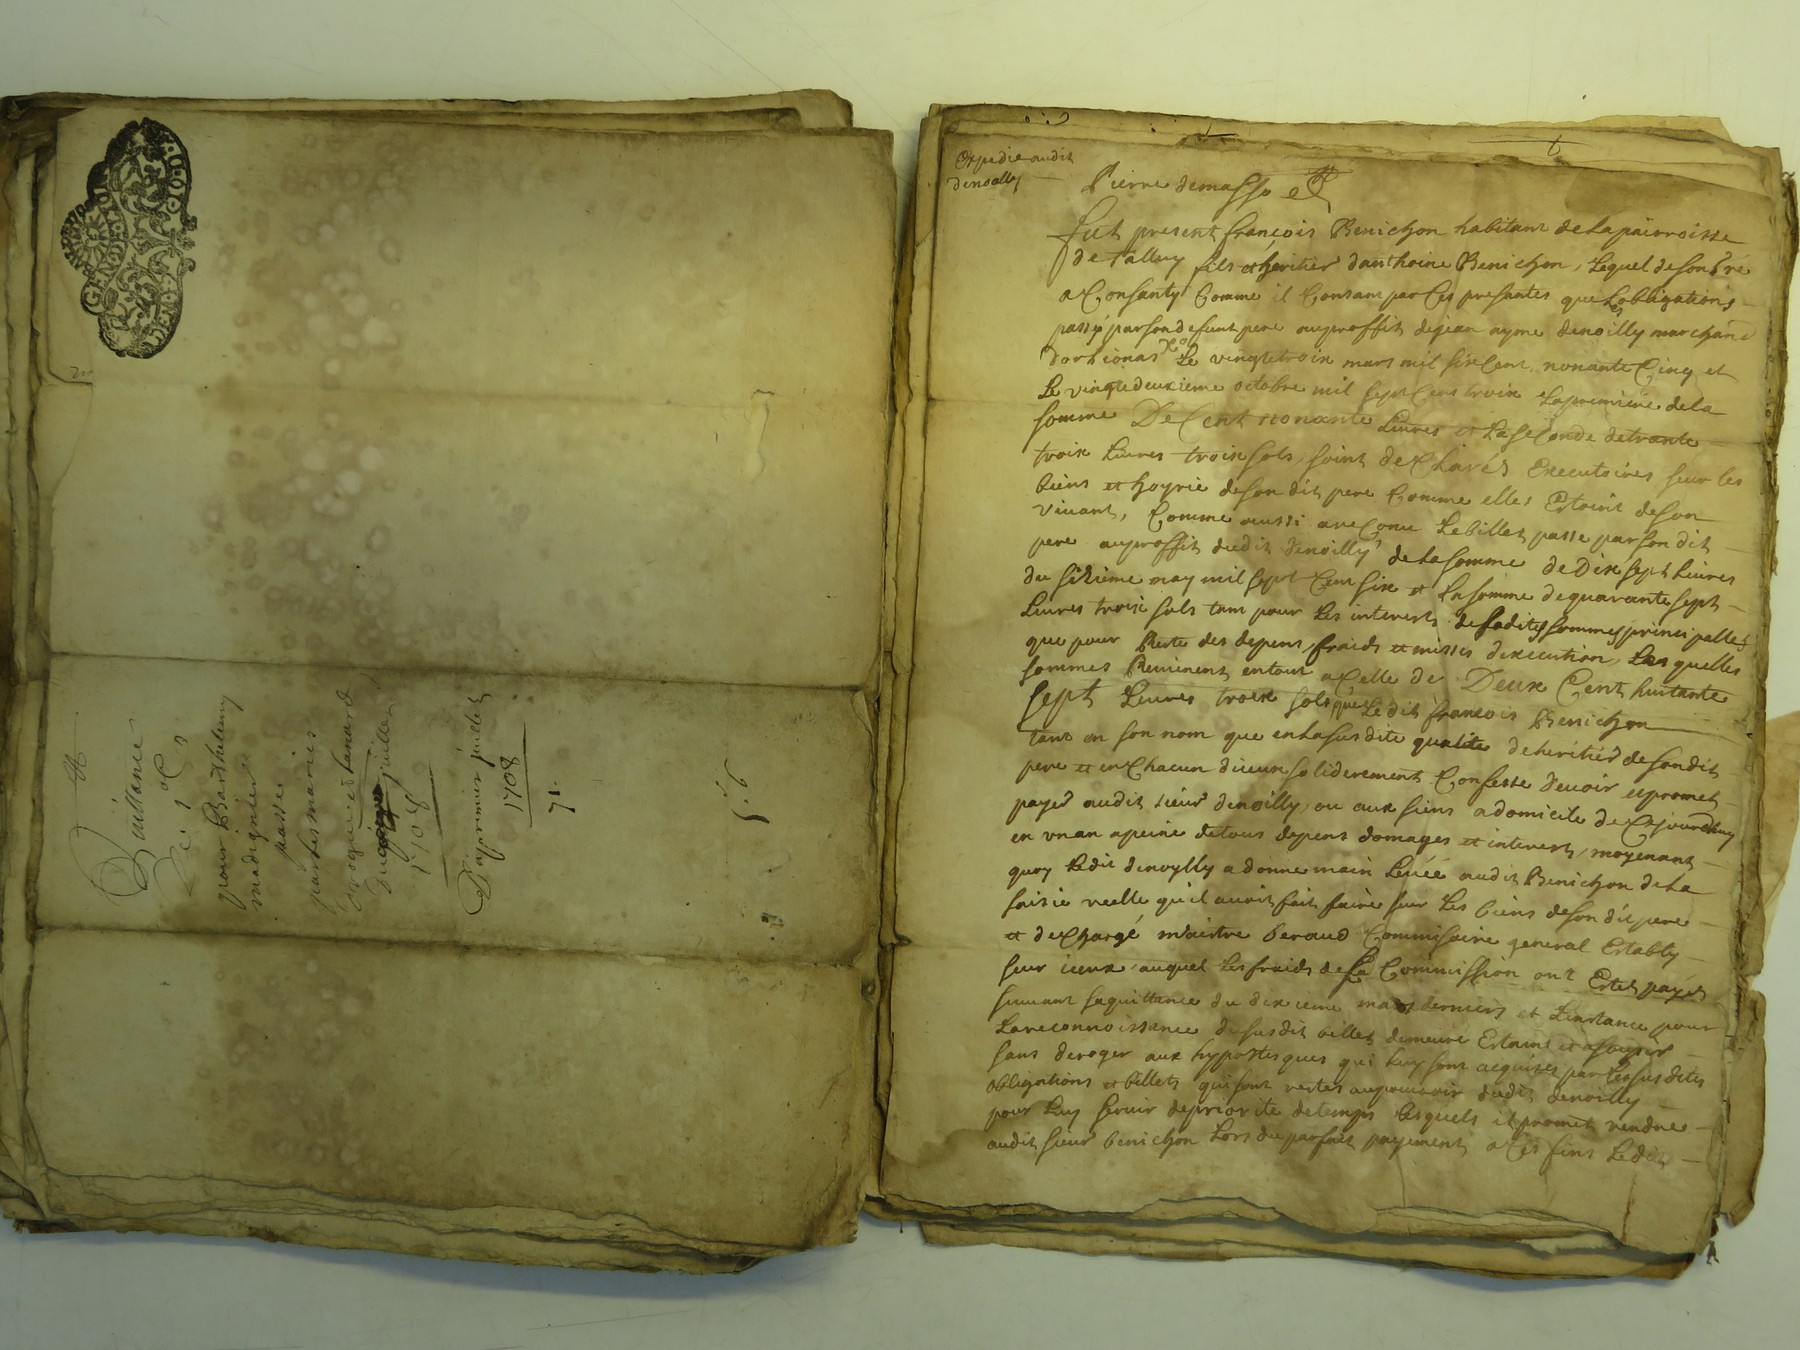 GRAND PAPIER
GENERATION
DENOS
Quittance
De 30 ℔
pour Barthelemy
madignier
passée
par les mariés
croquis et tanard
juillet
1708
Du premier juillet
1708
71.
5. 6
Expedie audit
denoally
Pierre demasso &
Fut present françois Benichon habitant de la pairroisse
de talluy fils et heritier d'anthoine Benichon, Lequel de son gré
a Consanty Comme il Consant par Ces presantes que Les obligations
passé par son defunt pere au proffit de jean ayme denoilly marchand
dorlienas Le vingtetroix mars mil six Cent nonante Cinq et
Le vingtedeuxieme octobre mil sept Cens troix La premiere de la
somme De Cent nonante Livres et La seConde de trante
troix Livres troix sols, soint deClarés Executoires sur les
biens et hoyrie de son dit pere Comme elles Estoint de son
vivant, Comme aussi a reConu Le billet passe par son dit
pere au proffit dudit denoilly de La somme de Dix sept Livres
du sixieme may mil sept Cent six et La somme de quarante sept
Livres troix sols tant pour Les interests desdittes sommes principalles
que pour Reste des depens, fraids et misses dexecution, Lesquelles
sommes Reviennent en tout a Celle de Deux Cent huitante
sept Livres troix sols que Ledit françois Benichon
tant en son nom que en La susdite qualité de heritier de son dit
pere et en Chacun diceux soliderement Confesse devoir et promet
payer audit sieur denoilly, ou aux siens a domicile de Cejourdhuy
en un an a peine de tous depens domages et interests, moyenant
quoy Ledit denoylly a donne main Levée audit Benichon de La
saisie reelle qu'il avoit fait faire sur Les biens de son dit pere
et deChargé maistre beraud Commisaire general Estably
sur iceux, auquel Les fraids de sa Commission ont Estes payés
suivant sa quittance du dixieme mars dernier et Linstance pour
La reconnoissance du susdit billet demeure Estainte et asoupie
sans deroger aux hypotesques qui Luy sont acquises par Les susdites
obligations et billets qui sont restes au pouvoir dudit denoilly
pour Luy servir de priorite de temps Lesquels il promet rendre
audit sieur benichon Lors du parfait payement, a Ces fins Ledit